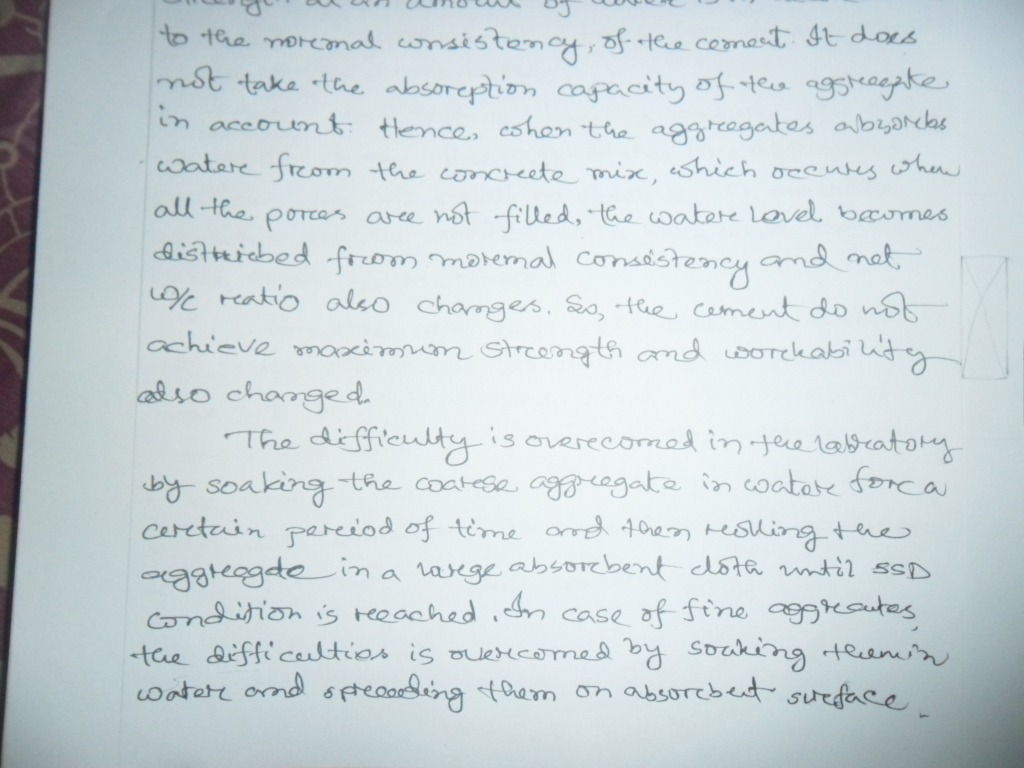 to the normal consistency, of the cement. It does
not take the absorption capacity of the aggregate
in account. Hence, when the aggregates absorbs
water from the concrete mix, which occures when
all the pores are not filled, the water level becomes
disturbed from normal consistency and net
w/c ratio also changes. So, the cement do not
achieve maximum strength and workability
also changed.
The difficulty is overcomed in the labratory
by soaking the coarse aggregate in water for a
certain period of time and then rolling the
aggregate in a large absorbent cloth until SSD
condition is reached. In case of fine aggregates,
the difficulties is overcomed by soaking them in
water and spreading them on absorbent surface.